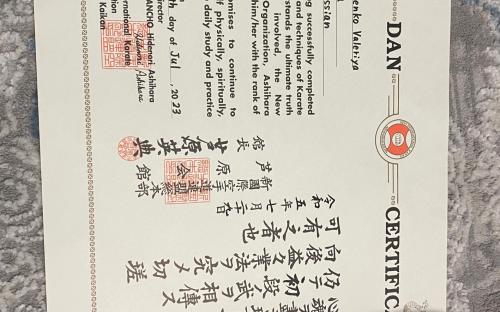 DAN CERTIFICA
enko Valeriya
ssian
g successfully completed
and techniques of Karate
stands the ultimate truth
involved, the New
Organization, Ashihara
him/her with the rank of
omises to continue to
f physically, spiritually,
daily study and practice
th day of Jul , 2023
irector
ANCHO Hidenori Ashihara
Hidenori Ashihara
ernational Karate
Kaikan
仍テ初段
ヲ相傳ス
向後益々業法ヲ究メ切瑳
可有之者也
令和五年七月二十九日
新國際空手道連盟
芦原会館
総本部
館長 芦原英典